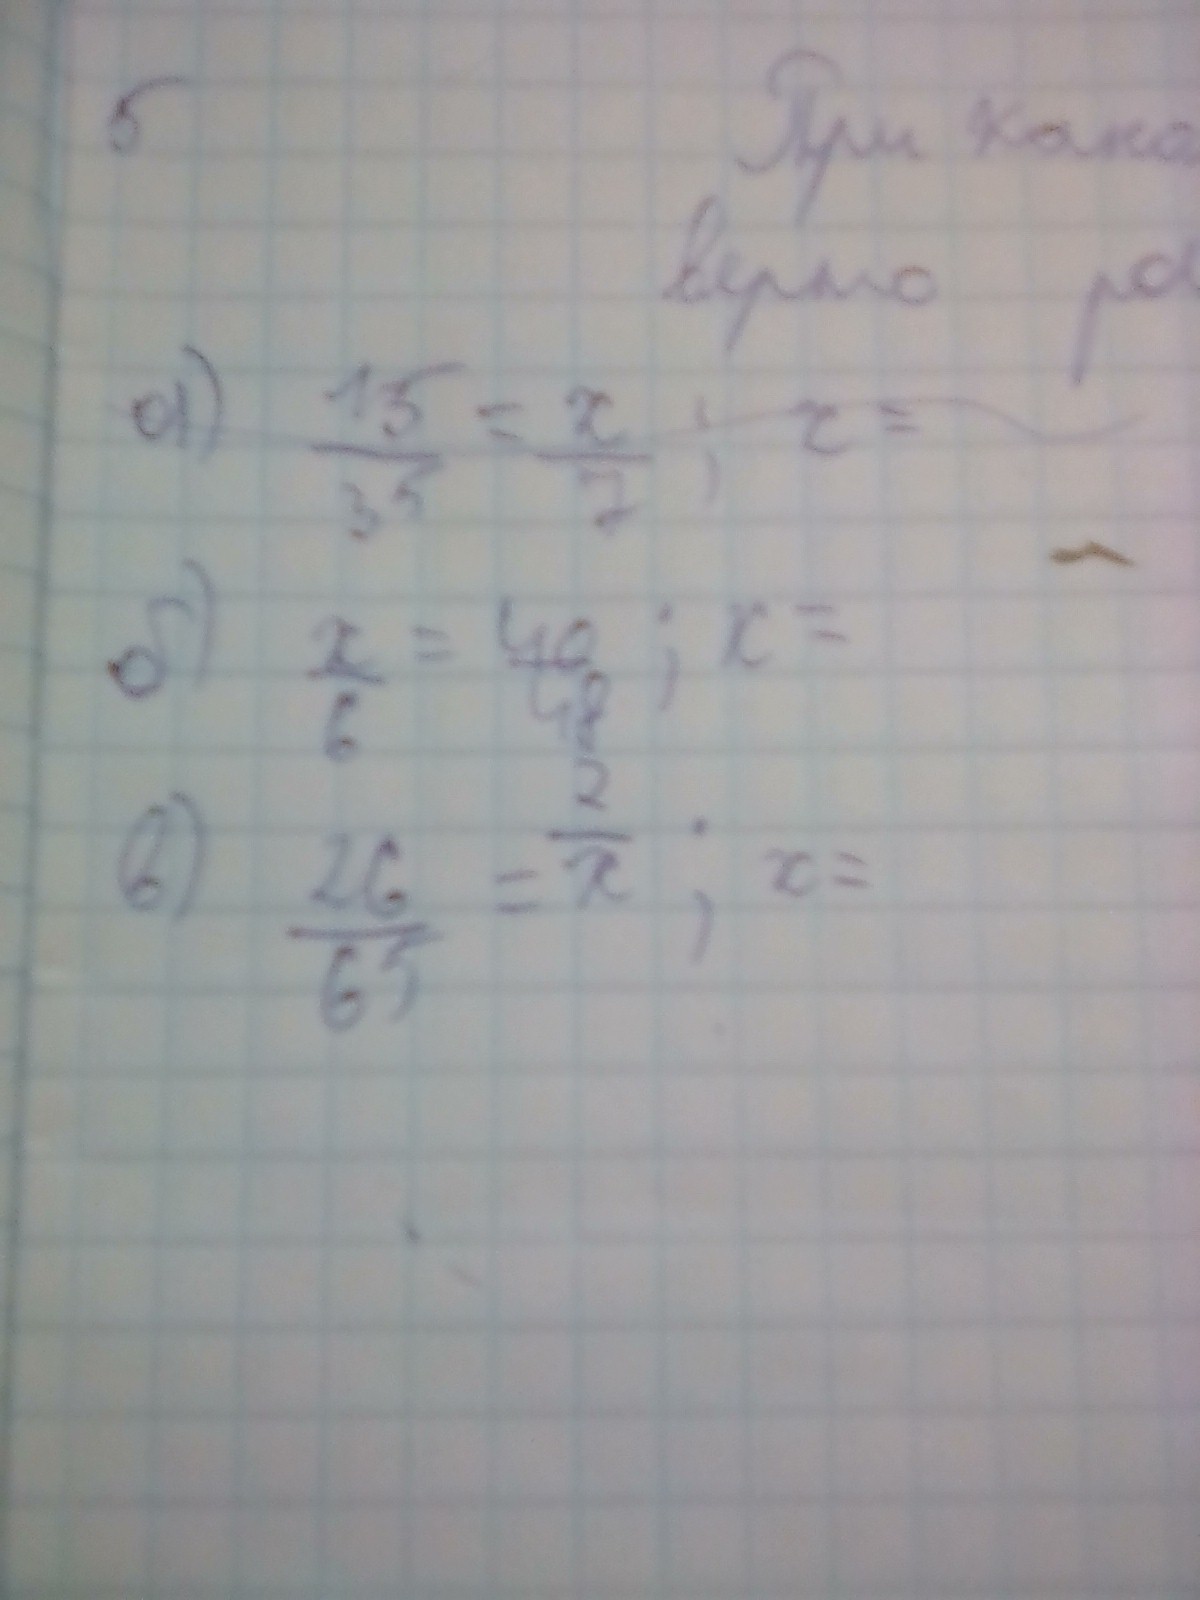 5 При како
верно ра
а) 15/35 = x/7 ; x =
б) x/6 = 40/48 ; x =
в) 26/65 = 2/x ; x =